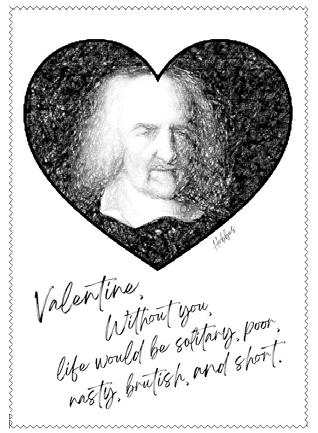 Hobbes
Valentine,
Without you,
life would be solitary, poor,
nasty, brutish, and short.